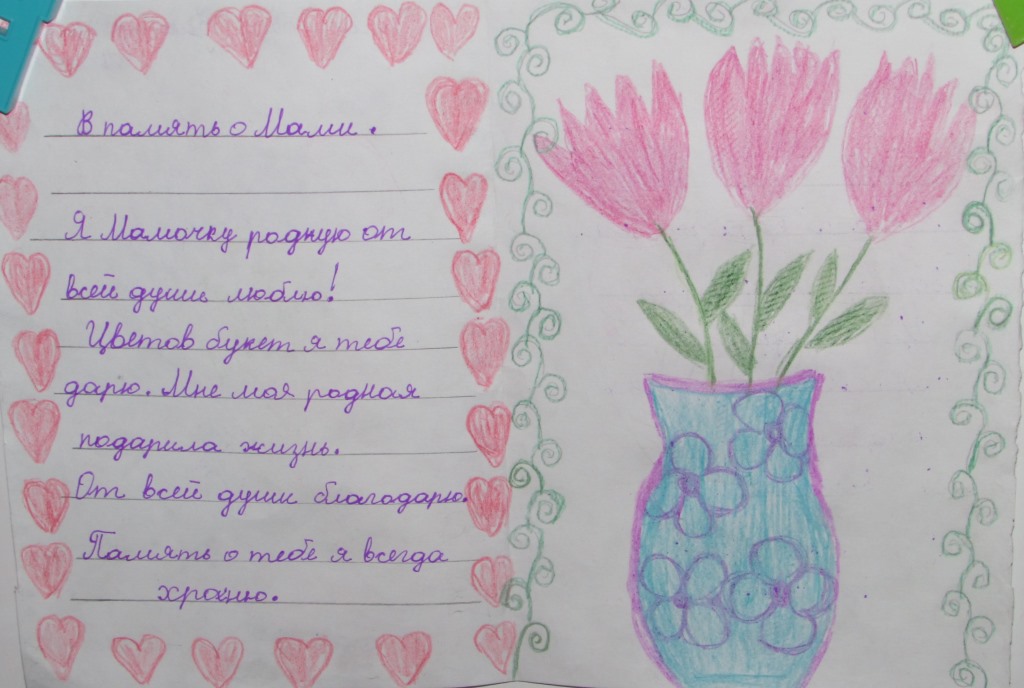 В память о Мами.
Я Мамочку родную от
всей души люблю!
Цветов букет я тебе
дарю. Мне моя родная
подарила жизнь.
От всей души благодарю.
Память о тебе я всегда
храню.